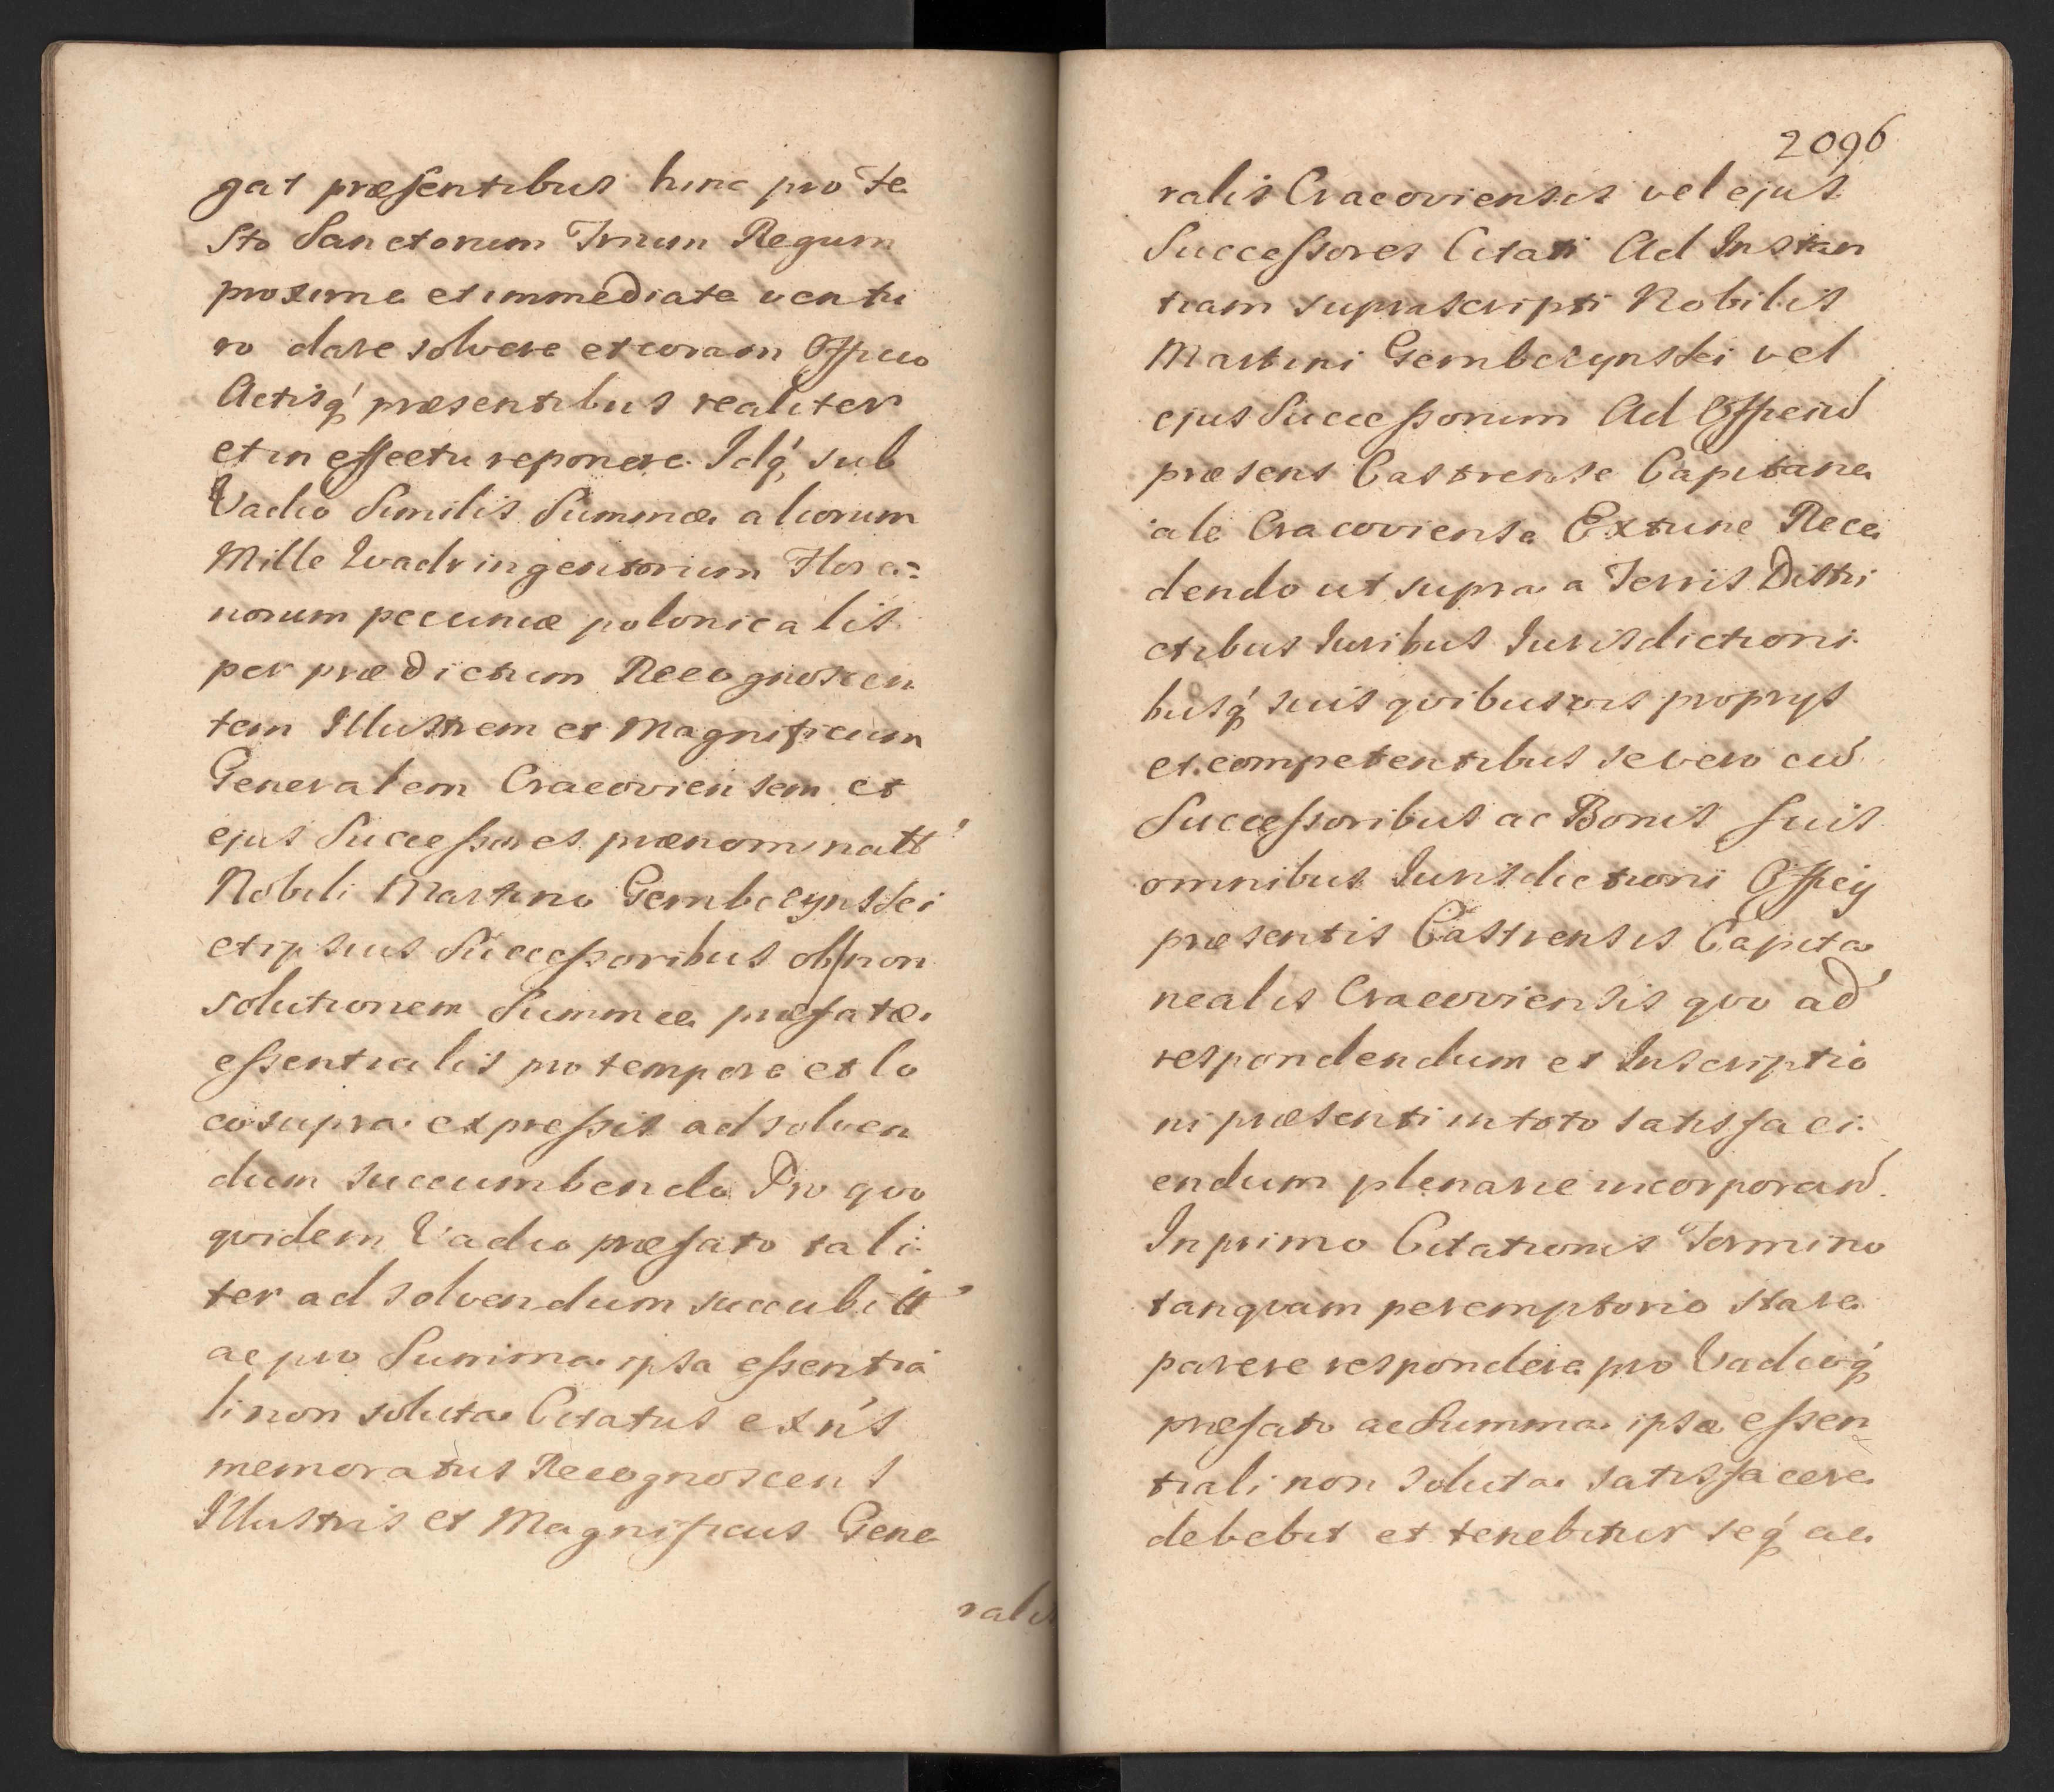 gat præsentibus hinc pro Fe
sto Sanctorum Trium Regum
proxime et immediate ventu
ro dare solvere et coram Officio
Actisq́ præsentibus realiter
et in effectu reponere Idq́ sub
Vadio Similis Summæ aliorum
Mille Quadringentorum Flore=
norum pecuniæ polonicalis
per prædictum Recognoscen
tem Illustrem et Magnificum
Generalem Cracoviensem et
ejus Successores prænominatt
Nobili Martino Gembczynski
et ipsius Successoribus ob non
solutionem Summæ præfatæ
essentialis pro tempore et lo
co supra expressis ad solven
dum succumbendo Pro quo
quidem Vadio præfato tali
ter ad solvendum succubitt
ac pro Summa ipsa essentia
li non soluta Citatus exńs
memoratus Recognoscens
Illustris et Magnificus Gene
ralis
2096
ralis Cracoviensis vel ejus
Successores Citati Ad Instan
tiam suprascripti Nobilis
Martini Gembczynski vel
ejus Successorum Ad Officiū
præsens Castrense Capitane
ale Cracoviense Extunc Rece
dendo ut supra a Terris Distri
ctibus Juribus Jurisdictioni
busq́ suis quibusvis proprys
et competentibus se vero cū
Successoribus ac Bonis suis
omnibus Jurisdictioni Officy
præsentis Castrensis Capita
nealis Cracoviensis quo ad
respondendum et Inscriptio
ni præsenti in toto satisfaci
endum plenarie incorporań
In primo Citationis Termino
tanquam peremptorio stare
parere respondere pro Vadioq́
præfato ac Summa ipsa essen
tiali non soluta satisfacere
debebit et tenebitur seq́ ac